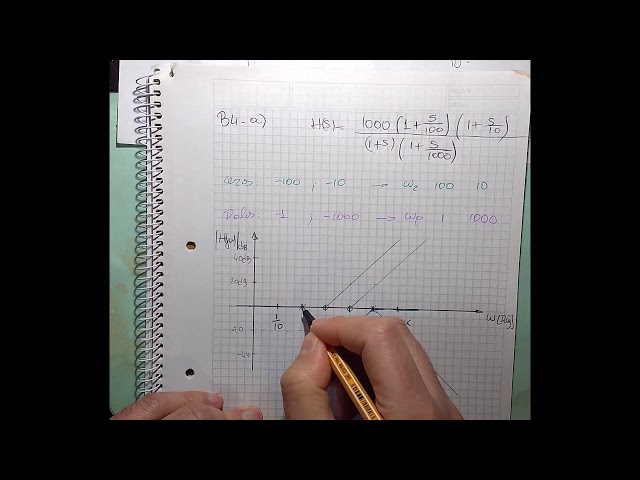 B4-a) H(s)= 1000 (1+s/100) (1+s/10) / (1+s) (1+s/1000)
ceros: -100 ; -10 → ωz 100 10
Polos: -1 ; -1000 → ωp 1 1000
|H(jω)|dB
40dB
20dB
1/10
K
ω
-20
-40